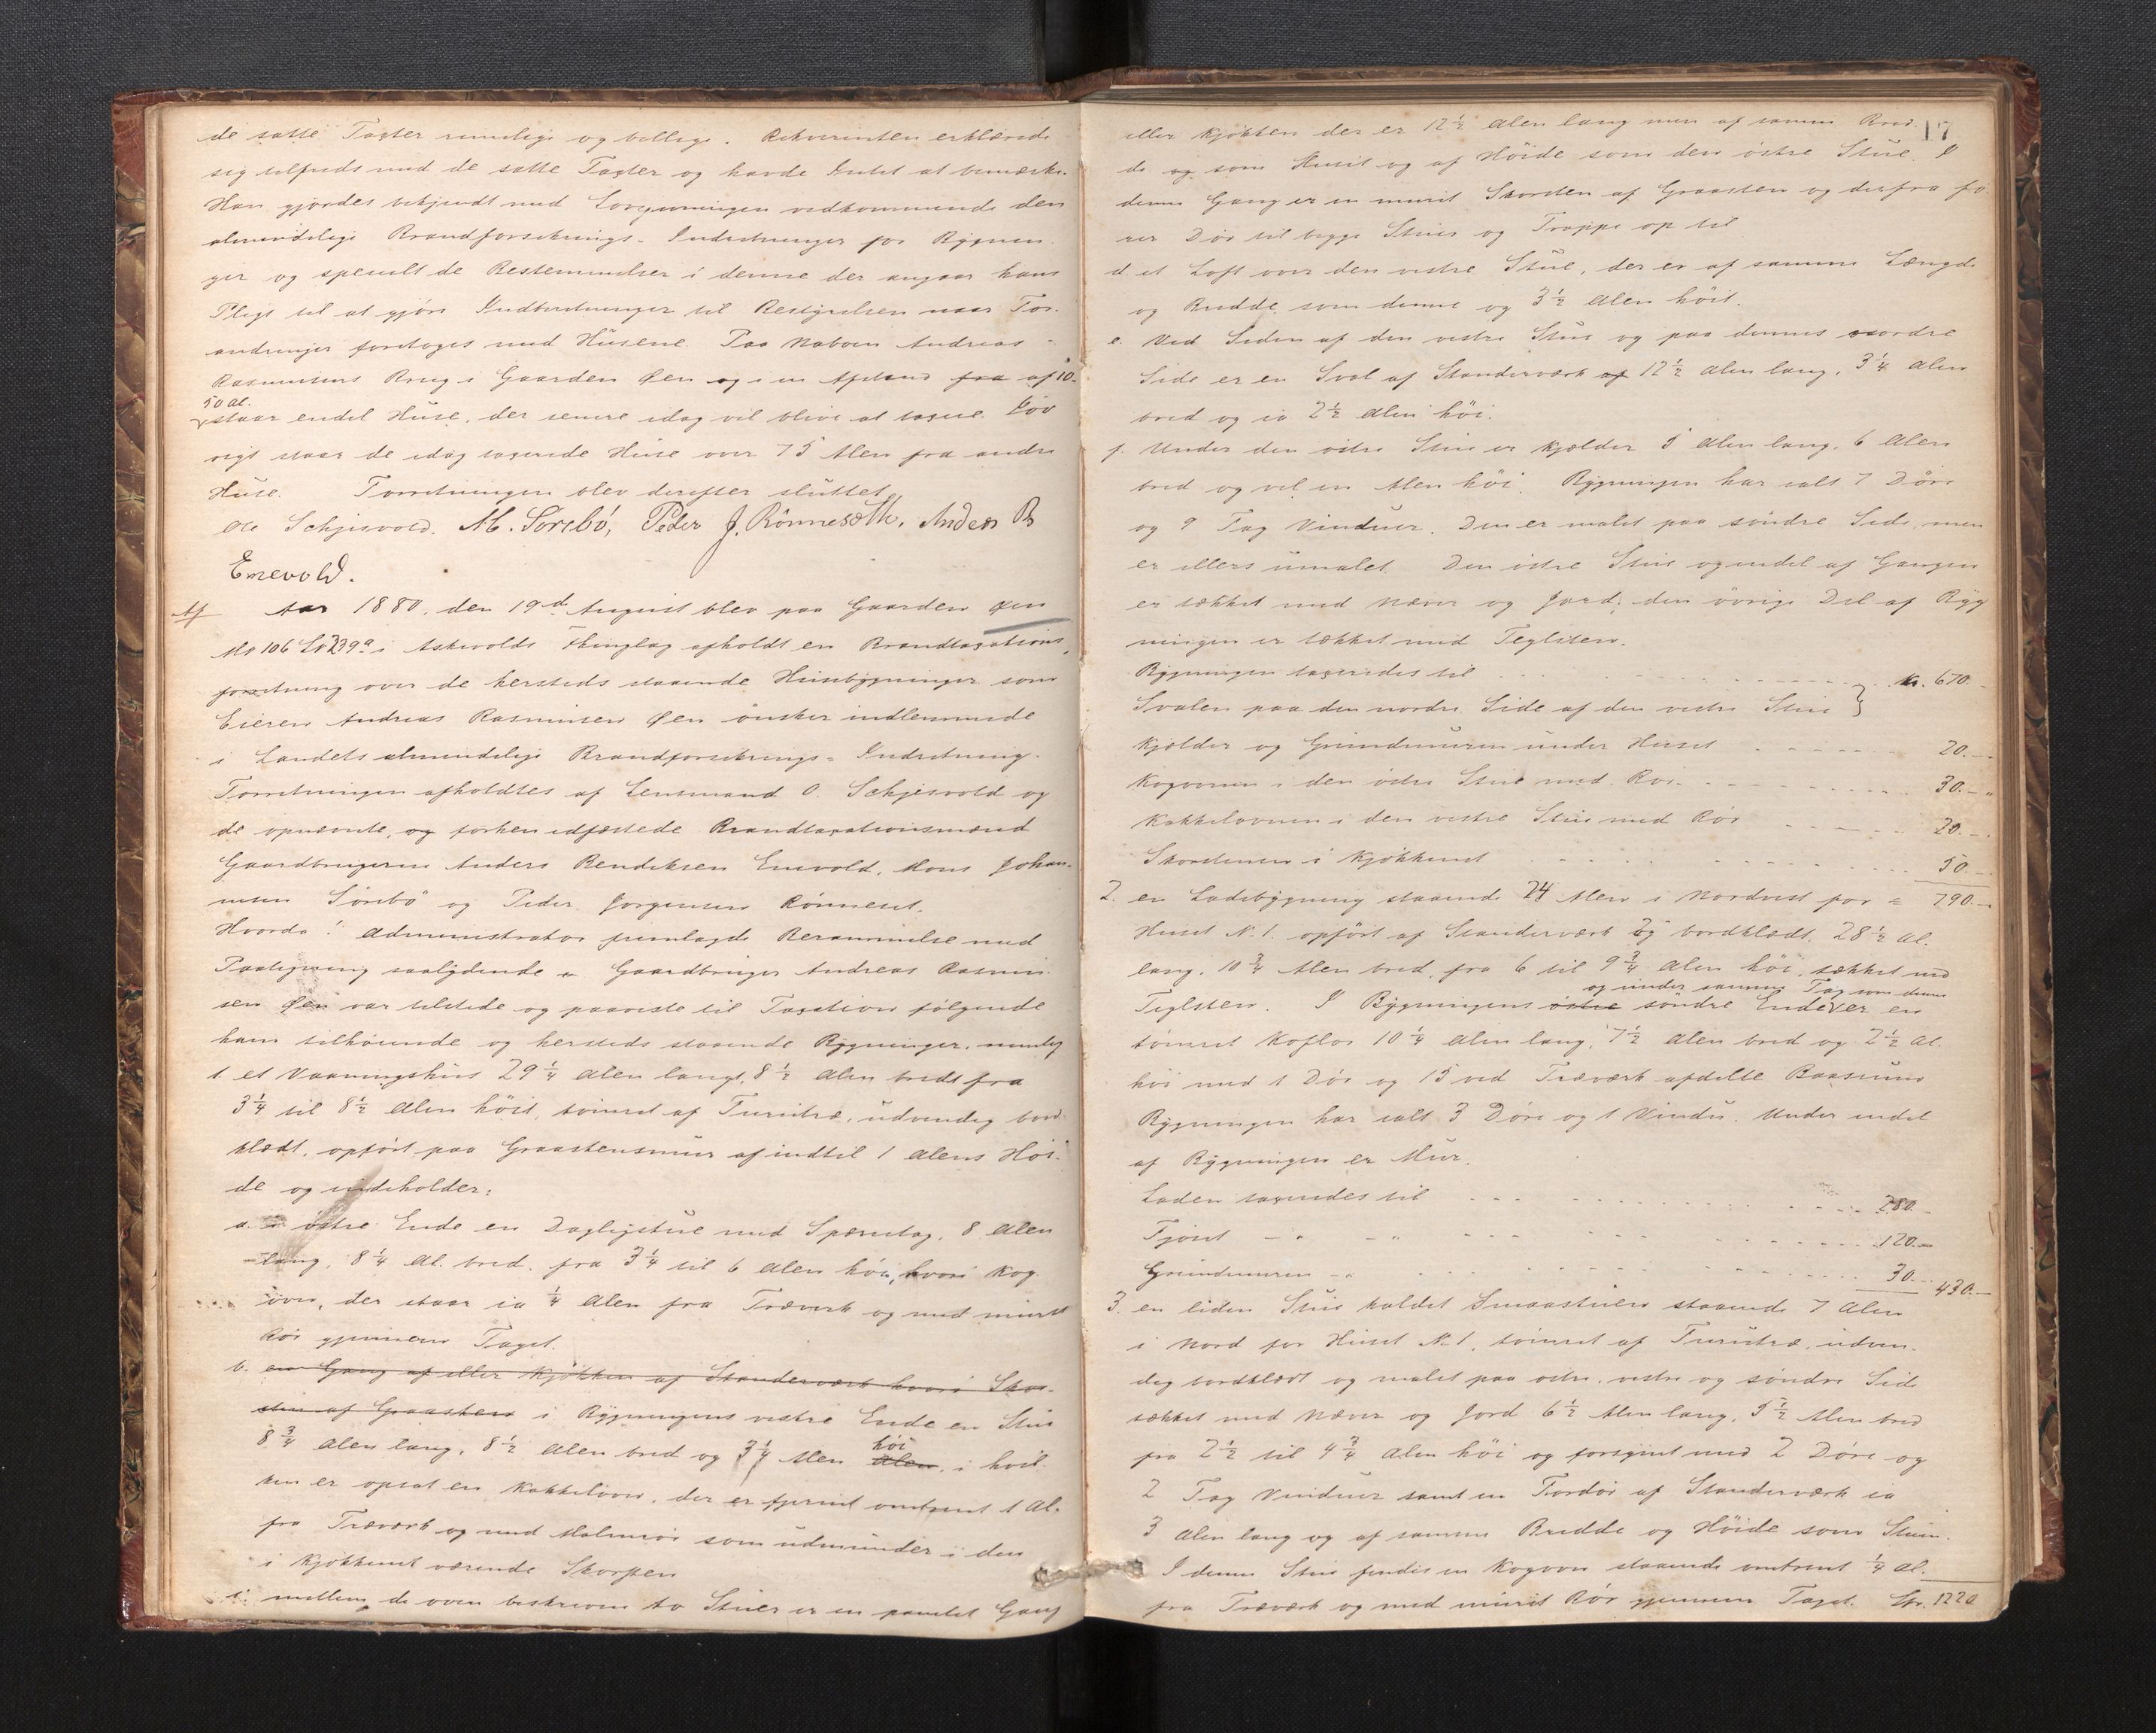 de satte Taxter rimelige og billige. Rekvirenten erklærede
sig tilfreds med de satte Taxter og havde Intet at bemærke.
Han gjordes bekjendt med Lovgivningen vedkommende den
almindelige Brandforsikrings-Indretninger for Bygnin
ger og specielt de Bestemmelser i denne der angaar hans
Pligt til at gjøre Indberetninger til Bestyrelsen naar For-
andringer foretages med Husene. Paa Naboen Andreas
Rasmussens Brug i Gaarden Øen og i en Afstand fra af 10-
50 Al.
staar endel Huse, der senere idag vil blive at taxere. Iøv
rigt staar de idag taxerede Huse over 75 Alen fra andre
Huse. Forretningen blev derefter sluttet
Ole Schjesvold. M. Sørebø, Peder J. Rönneseth, Anders B
Enevold.
Aar 1880, den 19d August blev paa Gaarden Øen
M№ 106 L№ 239a i Askvolds Thinglag afholdt en Brandtaxations
forretning over de hersteds staaende Husebygninger som
Eieren Andreas Rasmussen Øen ønsker indlemmede
i Landets almindelige Brandforsikrings-Indretning.
Forretningen afholdtes af Lensmand O. Schjesvold og
de opnævnte, og forhen edfæstede Brandtaxationsmænd
Gaardbrugerne Anders Bendiksen Enevold, Mons Johan-
nesen Sørebö og Peder Jørgensen Rönneset.
Hvorda! Administrator fremlagde Berammelse med
Paategning saalydende " Gaardbruger Andreas Rasmus
sen Øen var tilstede og paaviste til Taxation følgende
ham tilhørende og hersteds staaende Bygninger, nemlig
1. et Vaaningshus 29 1/4 Alen langt, 8 1/2 Alen bredt fra
3 1/4 til 8 1/2 Alen höit, tömret af Furutræ, udvendig bord
klædt, opfört paa Graastensmur af indtil 1 Alens Höi-
de og indeholder:
a. i östre Ende en Dagligstue med Spærretag, 8 Alen
lang, 8 1/4 Al. bred, fra 3 1/4 til 6 Alen höi, hvori Kog-
ovn, der staar ca 1/4 Alen fra Træværk og med muret
Rör gjennem Taget.
b. en Gang af eller Kjökken af Standerværk hvori Skor-
sten af Graasten i Bygningens vestre Ende en Stue
8 3/4 Alen lang, 8 1/2 Alen bred og 3 1/4 Alen Alen höi, i hvil-
ken er opsat en Kakkelovn, der er fjernet omtrent 1 Al.
fra Træværk og med Malmrör som udmunder i den
i Kjökkenet værende Skorsten
c. mellem de oven beskrevne to Stuer er en panelet Gang
17
eller Kjökken der er 12 1/2 Alen lang men af samme Bred-
de og som Huset og af Höide som den östre Stue. I
denne Gang er en muret Skorsten af Graasten og derfra fö
rer Dör til begge Stuer og Trappe op til
d. et Loft over den vestre Stue, der er af samme Længde
og Bredde som denne og 3 1/2 Alen höit.
e. Ved Siden af den vestre Stue og paa dennes nordre
Side er en Sval af Standerværk af 12 1/2 Alen lang, 3 1/4 Alen
bred og ca 2 1/2 Alen höi.
f. Under den östre Stue er Kjelder 5 Alen lang, 6 Alen
bred og vel en Alen höi. Bygningen har ialt 7 Döre
og 9 Fag Vinduer. Den er malet paa söndre Side, men
er ellers umalet. Den östre Stue og endel af Gangen
er tækket med Næver og Jord; den övrige Del af Byg
ningen er tækket med Teglsten.
Bygningen taxeredes til Kr. 670.
Svalen paa den nordre Side af den vestre Stue
Kjelder og Grundmuren under Huset 20.—
Kogovnen i den östre Stue med Rör 30.—
Kakkelovnen i den vestre Stue med Rör 20.—
Skorstenen i Kjökkenet 50.—
2. en Ladebygning staaende 24 Alen i Nordvest for = 790.—
Huset N. 1. opfört af Standerværk og bordklædt, 28 1/2 Al.
lang, 10 3/4 Alen bred, fra 6 til 9 3/4 Alen höi, tækket med
og under samme Tag som denne
Teglsten. I Bygningens östre söndre Ende er en
tömret Koflor 10 1/4 Alen lang, 7 1/2 Alen bred og 2 1/2 Al.
höi med 1 Dör og 15 ved Træværk afdelte Baasrum
Bygningen har ialt 3 Döre og 1 Vindu. Under endel
af Bygningen er Mur.
Laden taxeredes til 280.—
Fjöset — " — " 120.—
Grundmuren — " 30.— 430.—
3. en liden Stue kaldet Smaastuen staaende 7 Alen
i Nord for Huset N. 1, tömret af Furutræ, udven-
dig bordklædt og malet paa östre, vestre og söndre Side
tækket med Næver og Jord 6 1/2 Alen lang, 5 1/2 Alen bred
fra 2 1/2 til 4 3/4 Alen höi og forsynet med 2 Döre og
2 Fag Vinduer samt en Fordör af Standerværk ca
3 Alen lang og af samme Bredde og Höide som Stuen.
I denne Stue findes en Kogovn staaende omtrent 1/4 Al.
fra Træværk og med muret Rör gjennem Taget. Kr. 1220